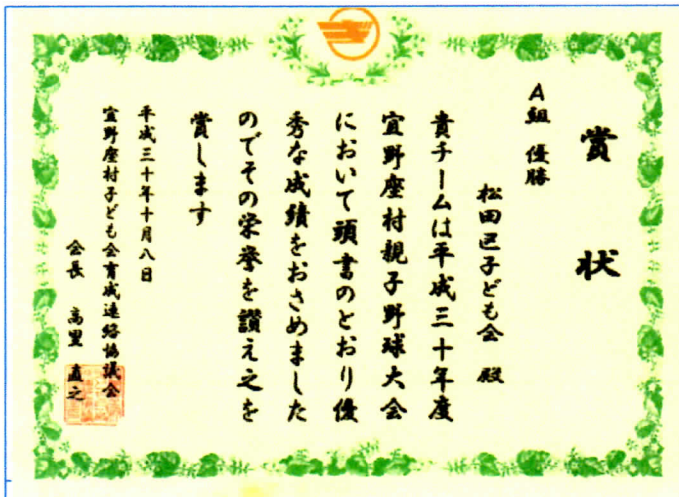 賞状
A組 優勝
松田区子ども会 殿
貴チームは平成三十年度
宜野座村親子野球大会
において頭書のとおり優
秀な成績をおさめました
のでその栄誉を讃え之を
賞します
平成三十年十月八日
宜野座村子ども会育成連絡協議会
会長 高里 直之